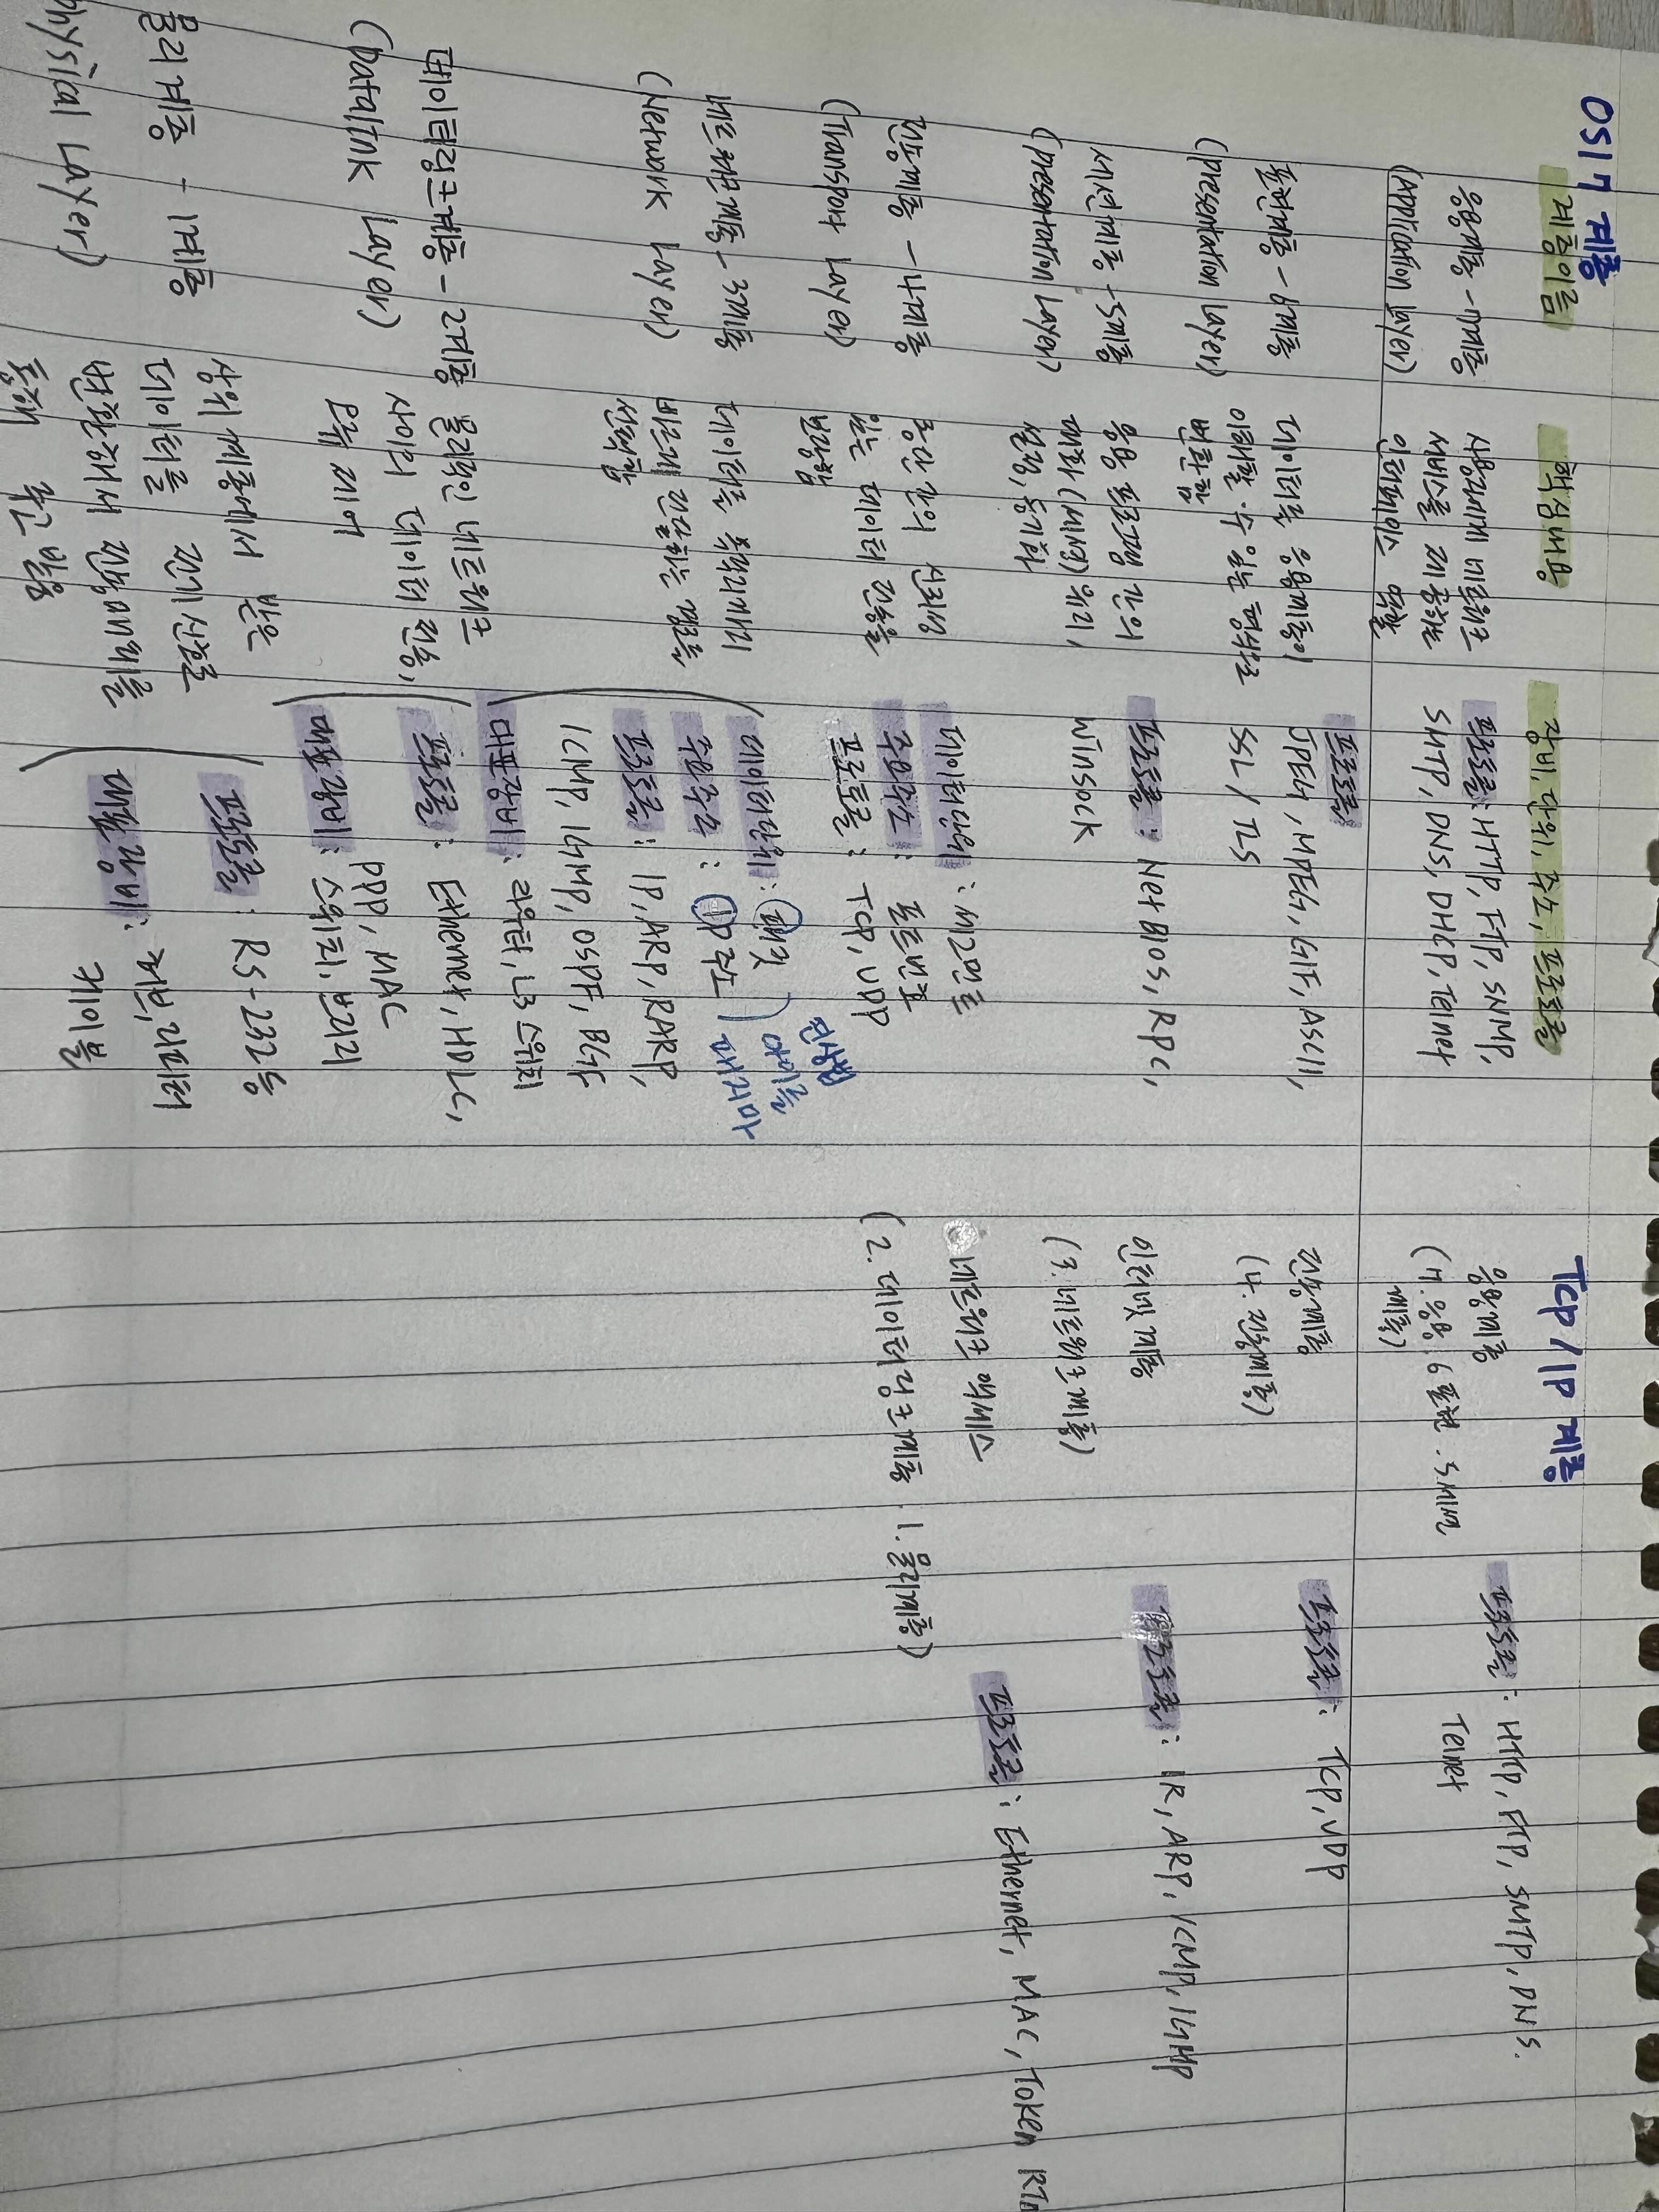 OSI 7 계층
계층이름
핵심내용
장비, 단위, 주소, 프로토콜
응용계층 - 7계층
(Application Layer)
사용자에게 네트워크
서비스를 제공하는
인터페이스 역할
프로토콜: HTTP, FTP, SNMP,
SMTP, DNS, DHCP, Telnet
표현계층 - 6계층
(presentation Layer)
데이터를 응용계층이
이해할 수 있는 형식으로
변환함
프로토콜:
JPEG, MPEG, GIF, ASCII,
SSL / TLS
세션계층 - 5계층
(presentation Layer)
응용 프로그램 간의
대화 (세션) 유지,
설정, 동기화
프로토콜: Net BIOS, RPC,
Winsock
전송계층 - 4계층
(Transport Layer)
종단 간의 신뢰성
있는 데이터 전송을
보장함
데이터단위: 세그먼트
주요주소: 포트번호
프로토콜: TCP, UDP
네트워크계층 - 3계층
(Network Layer)
데이터를 목적지까지
빠르게 전달하는 경로를
선택함
데이터단위: 패킷
주요주소: IP주소
프로토콜: IP, ARP, RARP,
ICMP, IGMP, OSPF, BGP
대표장비: 라우터, L3 스위치
데이터링크계층 - 2계층
(Datalink Layer)
물리적인 네트워크
사이의 데이터 전송,
오류 제어
프로토콜: Ethernet, HDLC,
PPP, MAC
대표장비: 스위치, 브리지
물리 계층 - 1계층
physical Layer)
상위 계층에서 받은
데이터를 전기 신호로
변환해서 전송매체를
통해
프로토콜: RS-232 등
대표장비: 허브, 리피터
케이블
TCP / IP 계층
응용계층
(7. 응용. 6 표현. 5세션
계층)
프로토콜: HTTP, FTP, SMTP, DNS.
Telnet
전송계층
(4. 전송계층)
프로토콜: TCP, UDP
인터넷 계층
(3. 네트워크 계층)
프로토콜: IP, ARP, ICMP, IGMP
네트워크 액세스
(2. 데이터링크계층. 1. 물리계층)
프로토콜: Ethernet, MAC, Token